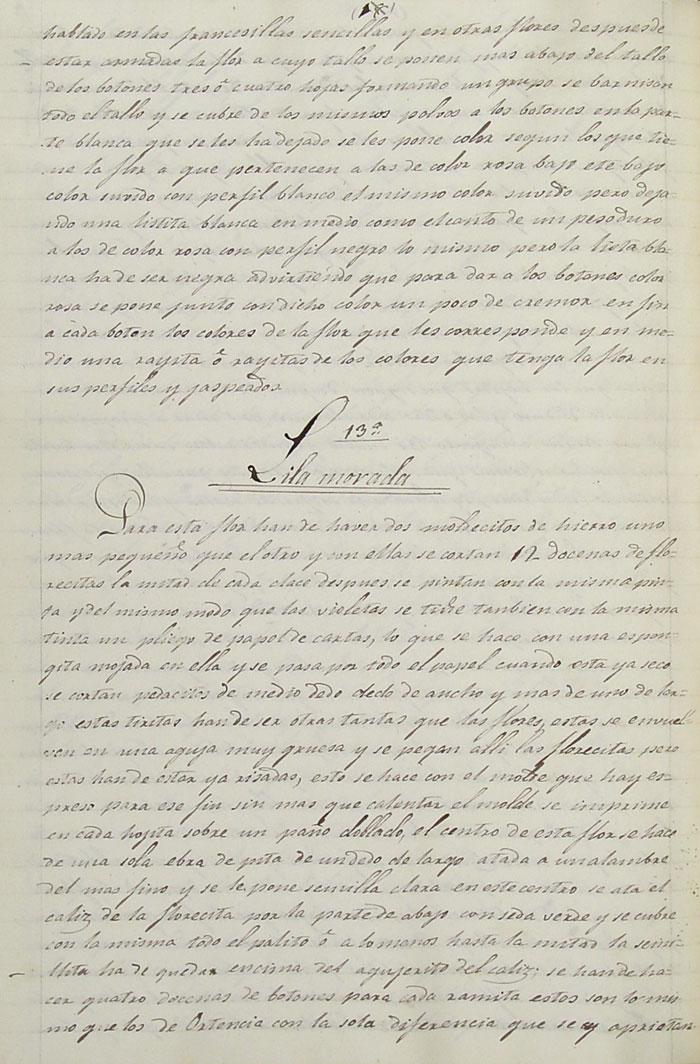 hablado en las francesillas sencillas y en otras flores despues de
estar armadas la flor a cuyo tallo se ponen mas abajo del tallo
de los botones tres ó cuatro hojas formando un grupo se barnisan
todo el tallo y se cubre de los mismos polvos a los botones en la par-
te blanca que se les ha dejado se les pone color segun los que tie-
ne la flor a que pertenecen a las de color rosa bajo ese bajo
color suvido con perfil blanco el mismo color suvido pero deja-
ndo una listita blanca en medio como el canto de un peso duro
a los de color rosa con perfil negro lo mismo pero la lista bla-
nca ha de ser negra advirtiendo que para dar a los botones color
rosa se pone junto con dicho color un poco de cremor en fin
a cada boton los colores de la flor que les corresponde y en me-
dio una rayita ó rayitas de los colores que tenga la flor en
sus perfiles y jaspeados
13ª
Lila morada
Para esta flor han de haver dos moldecitos de hierro uno
mas pequeño que el otro y con ellas se cortan 12 docenas de flo-
recitas la mitad de cada clace despues se pintan con la misma pin-
ta y del mismo modo que las violetas se tiñe tanbien con la misma
tinta un pliego de papel de cartas, lo que se hace con una espon-
gita mojada en ella y se pasa por todo el papel cuando esta ya seco
se cortan pedacitos de medio dedo dedo de ancho y mas de uno de lar-
go estas tiritas han de ser otras tantas que las flores, estas se envuel-
ven en una aguja muy gruesa y se pegan alli las florecitas pero
estas han de estar ya risadas, esto se hace con el molde que hay es-
preso para ese fin sin mas que calentar el molde se imprime
en cada hojita sobre un paño doblado, el centro de esta flor se hace
de una sola ebra de pita de un dedo de largo atada a un alambre
del mas fino y se le pone semilla clara en este centro se ata el
caliz de la florecita por la parte de abajo con seda verde y se cubre
con la misma todo el palito ó a lo menos hasta la mitad la semi-
llita ha de quedar encima del agujerito del caliz; se han de ha-
cer quatro docenas de botones para cada ramita estos son lo mis-
mo que los de Ortencia con la sola diferencia que se aprietan